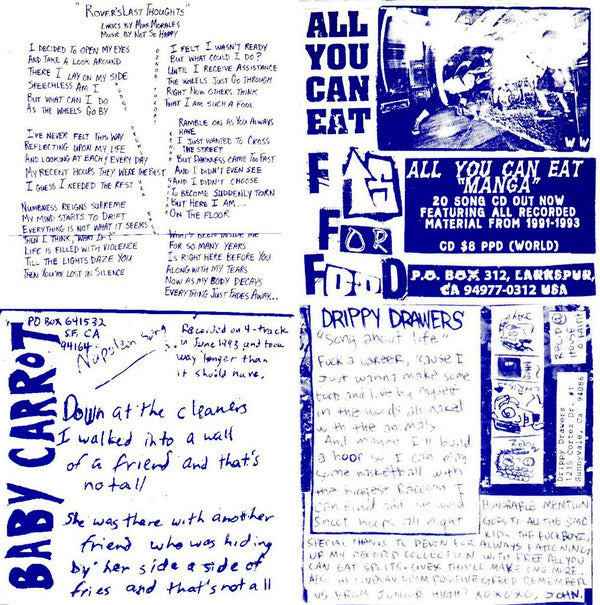 "Rover's Last Thoughts"
Lyrics by Mike Morales
Music by Not So Happy
I decided to open my eyes
and take a look around
There I lay on my side
Speechless am I
But what can I do
As the wheels go by
I've never felt this way
Reflecting upon my life
and looking at each every day
My recent hours they were be best
I guess I needed the rest
Numbness reigns supreme
My mind starts to drift
Everything is not what it seems
Then I think, what if
Life is filled with violence
Till the lights daze you
Then you're lost in silence
I felt I wasn't ready
But what could I do?
Until I receive assistance
The wheels just go through
Right now others think
That I am such a fool
Ramble on as you always
have
I just wanted to cross
the street
But darkness came too fast
And I didn't even see
And I didn't choose
To become suddenly torn
But here I am...
On the floor
What's been inside me
For so many years
Is right here before you
Along with my tears
Now as my body decays
Everything just fades away...
ALL
YOU
CAN
EAT
F IS
FOR
FOOD
ALL YOU CAN EAT
"MANGA"
20 SONG CD OUT NOW
FEATURING ALL RECORDED
MATERIAL FROM 1991-1993
CD $8 PPD (WORLD)
P.O. BOX 312, LARKSPUR,
CA 94977-0312 USA
BABY CARROT
PO BOX 641532
S.F. CA
94164
Recorded on 4-track
in June 1993 and took
way longer than
it should have.
Down at the cleaners
I walked into a wall
of a friend and that's
not all
She was there with another
friend who was hiding
by her side a side of
fries and that's not all
DRIPPY DRAWERS
"Song about life"
Fuck a career, 'cause I
just wanna make some
food and live by myself
in the woods all naked
with the animals
And maybe I'll build
a hoop so I can play
some basketball with
the biggest raccoon I
can find and we would
shoot hoops all night
Drippy Drawers
1235 Cortez Dr. #1
Sunnyvale, Ca. 94086
HONORABLE MENTION
GOES TO ALL THE SMC
KIDS. THE FUCKBOYZ,
SPECIAL THANKS TO DEVON FOR ALWAYS FATTENING
UP MY RECORD COLLECTION WITH FREE ALL YOU
CAN EAT SPLITS.
US FROM JUNIOR HIGH? XOXOXO, JOHN.